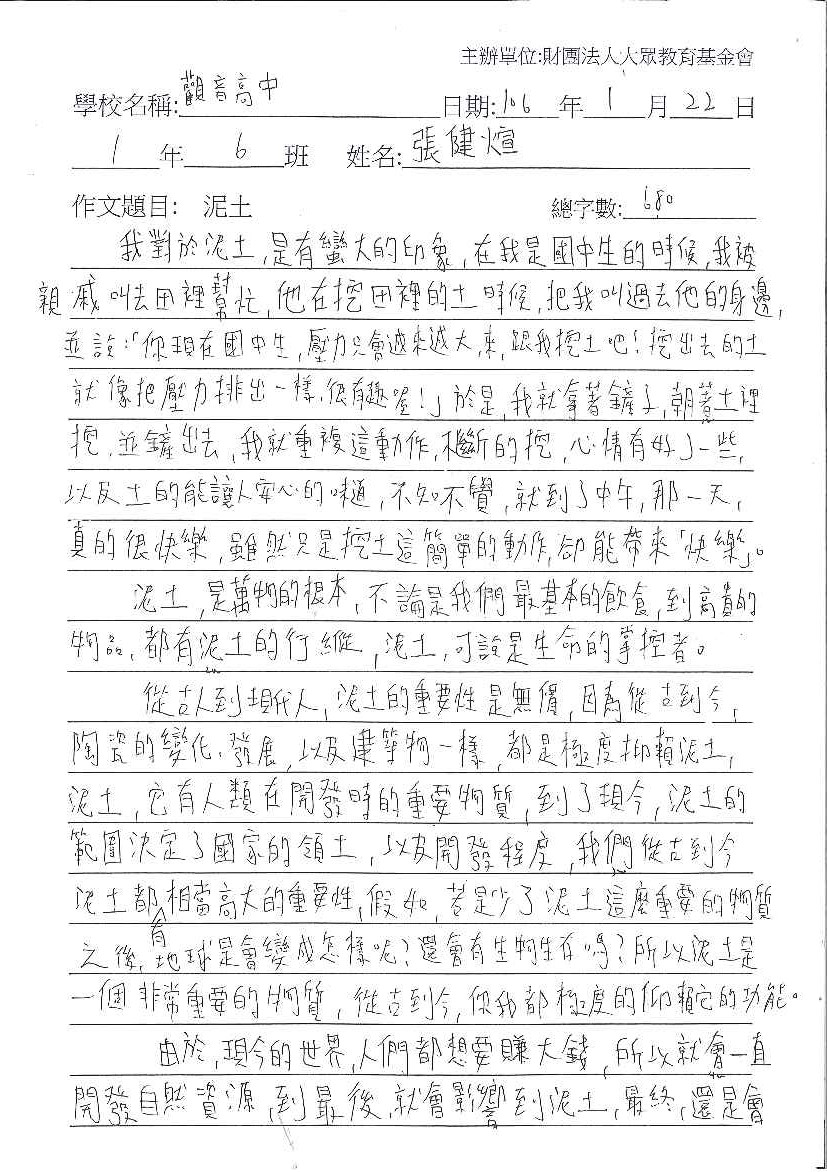 主辦單位:財團法人大眾教育基金會
學校名稱:觀音高中 日期:106年1月22日
1年6班 姓名:張健煊
作文題目: 泥土 總字數:680
我對於泥土,是有蠻大的印象,在我是國中生的時候,我被
親戚叫去田裡幫忙,他在挖田裡的土時候,把我叫過去他的身邊,
並說:「你現在國中生,壓力只會越來越大,來,跟我挖土吧!挖出去的土
就像把壓力排出一樣,很有趣喔!」於是,我就拿著鏟子,朝著土裡
挖,並鏟出去,我就重複這動作,不斷的挖,心情有好了一些,
以及土的能讓人安心的味道,不知不覺,就到了中午,那一天,
真的很快樂,雖然只是挖土這簡單的動作,卻能帶來「快樂」。
泥土,是萬物的根本,不論是我們最基本的飲食,到高貴的
物品,都有泥土的行蹤,泥土,可說是生命的掌控者。
從古人到現代人,泥土的重要性是無價,因為從古到今,
陶瓷的變化、發展,以及建築物一樣,都是極度仰賴泥土,
泥土,它有人類在開發時的重要物質,到了現今,泥土的
範圍決定了國家的領土,以及開發程度,我們從古到今
泥土都有相當高大的重要性,假如,若是少了泥土這麼重要的物質
之後,地球是會變成怎樣呢?還會有生物生存嗎?所以泥土是
一個非常重要的物質,從古到今,你我都極度的仰賴它的功能。
由於,現今的世界,人們都想要賺大錢,所以就會一直
開發自然資源,到最後,就會影響到泥土,最終,還是會